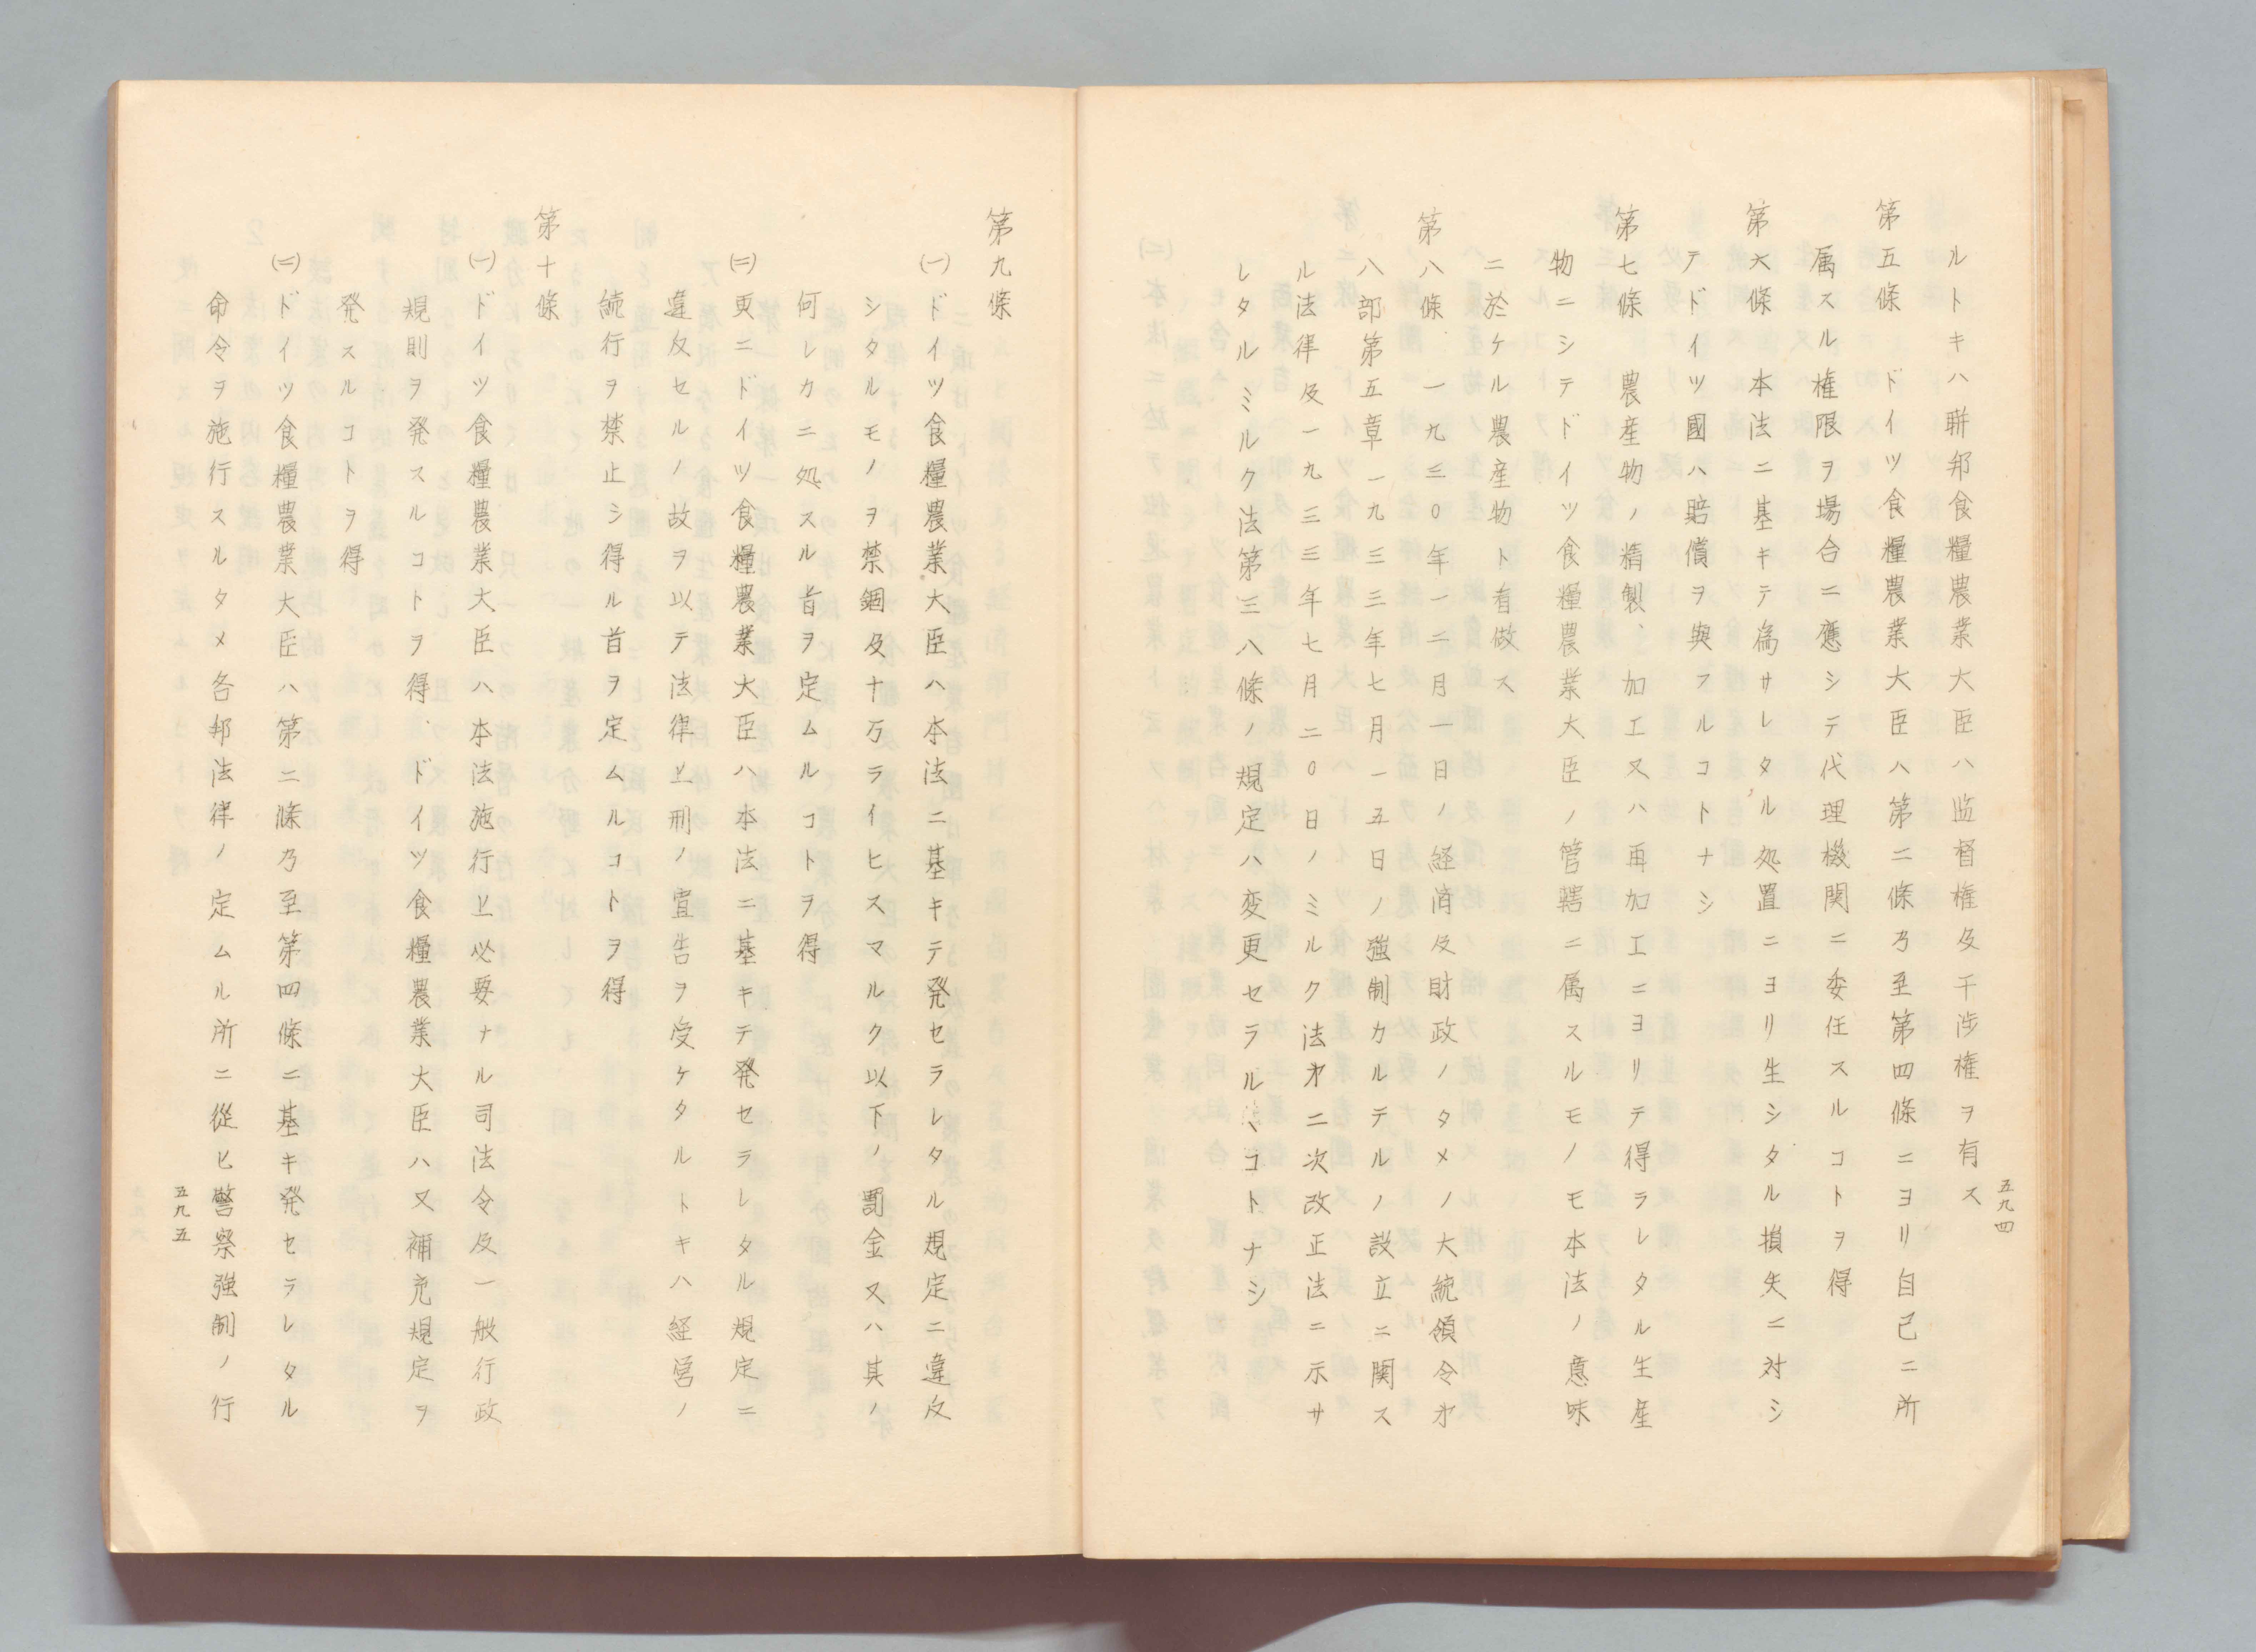 五九四
ルトキハ聯邦食糧農業大臣ハ监督権及干渉権ヲ有ス
第五條　ドイツ食糧農業大臣ハ第二條乃至第四條ニヨリ自己ニ所
属スル権限ヲ場合ニ應シテ代理機関ニ委任スルコトヲ得
第六條　本法ニ基キテ為サレタル処置ニヨリ生シタル損失ニ対シ
テドイツ國ハ賠償ヲ與フルコトナシ
第七條　農産物ノ精製、加工又ハ再加工ニヨリテ得ラレタル生産
物ニシテドイツ食糧農業大臣ノ管轄ニ属スルモノモ本法ノ意味
ニ於ケル農産物ト看做ス
第八條　一九三〇年一二月一日ノ経済及財政ノタメノ大統領令才
八部第五章一九三三年七月一五日ノ強制カルテルノ設立ニ関ス
ル法律及一九三三年七月二〇日ノミルク法才二次改正法ニ示サ
レタルミルク法第三八條ノ規定ハ変更セラルヽコトナシ
第九條
㈠ドイツ食糧農業大臣ハ本法ニ基キテ発セラレタル規定ニ違反
シタルモノヲ禁錮及十万ライヒスマルク以下ノ罰金又ハ其ノ
何レカニ処スル旨ヲ定ムルコトヲ得
㈡更ニドイツ食糧農業大臣ハ本法ニ基キテ発セラレタル規定ニ
違反セルノ故ヲ以テ法律上刑ノ宣告ヲ受ケタルトキハ経営ノ
続行ヲ禁止シ得ル旨ヲ定ムルコトヲ得
第十條
㈠ドイツ食糧農業大臣ハ本法施行上必要ナル司法令及一般行政
規則ヲ発スルコトヲ得、ドイツ食糧農業大臣ハ又補充規定ヲ
発スルコトヲ得
㈡ドイツ食糧農業大臣ハ第二條乃至第四條ニ基キ発セラレタル
命令ヲ施行スルタメ各邦法律ノ定ムル所ニ從ヒ警察強制ノ行
五九五